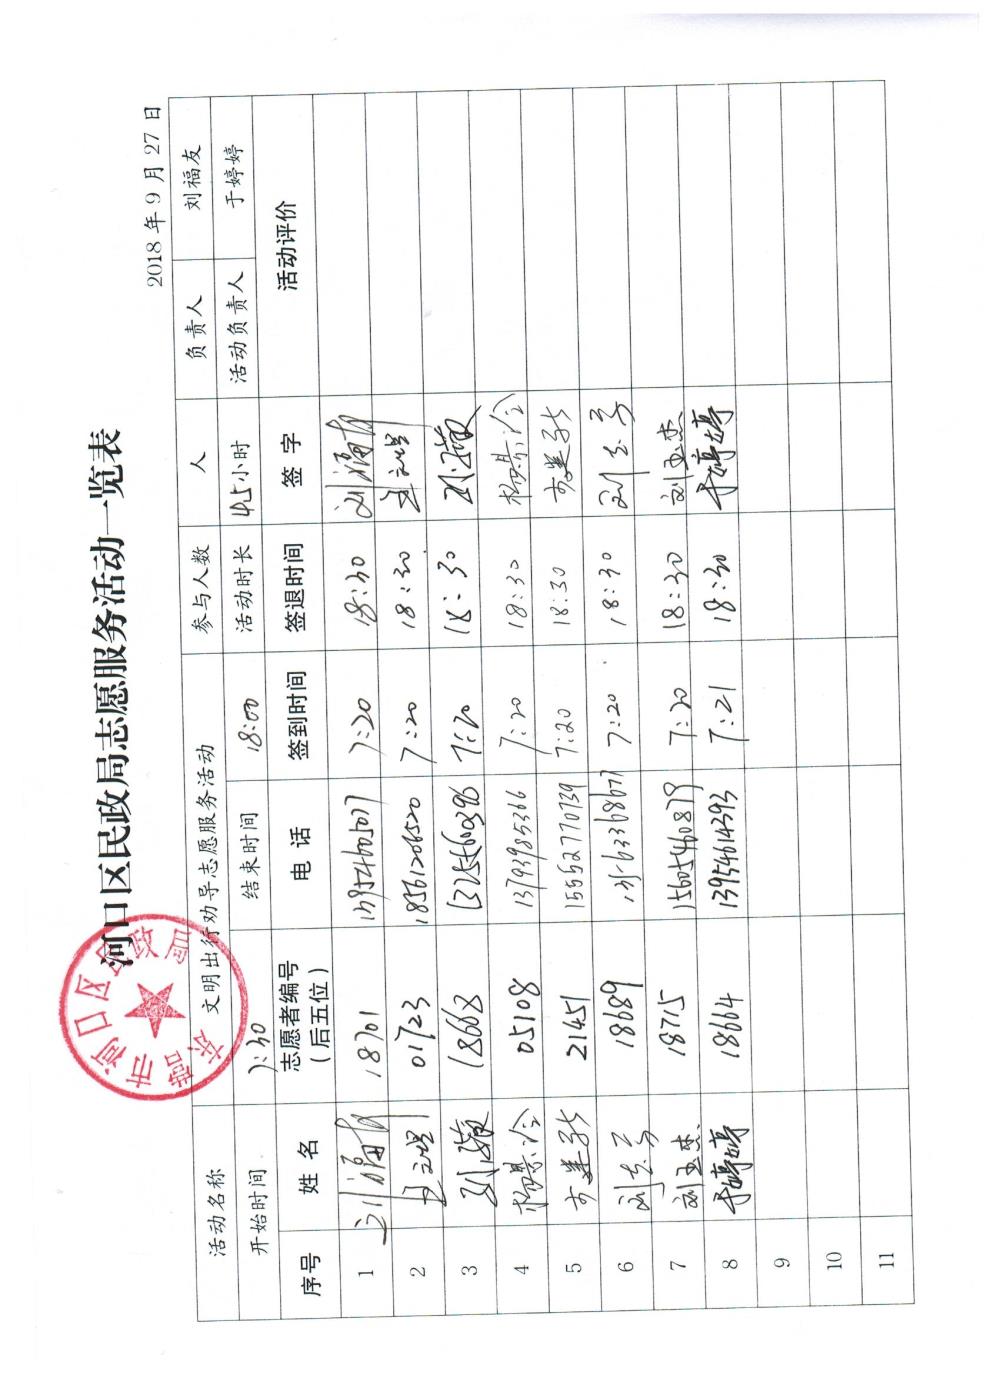 河口区民政局志愿服务活动一览表
东营市河口区民政局
2018 年 9 月 27 日
活动名称 文明出行劝导志愿服务活动 参与人数 人 负责人 刘福友
开始时间 7:30 结束时间 18:00 活动时长 小时 活动负责人 于婷婷
序号 姓 名 志愿者编号（后五位） 电 话 签到时间 签退时间 签 字 活动评价
1 刘福友 18701 13954605077 7:20 18:30 刘福友
2 01723 18561206520 7:20 18:30
3 18668 13255660396 7:20 18:30
4 杨景冷 05108 13793985366 7:20 18:30 杨景冷
5 21451 15552770739 7:20 18:30
6 18689 7:20 18:30
7 刘玉杰 18715 15605460879 7:20 18:30 刘玉杰
8 于婷婷 18664 13954614393 7:21 18:30 于婷婷
9
10
11